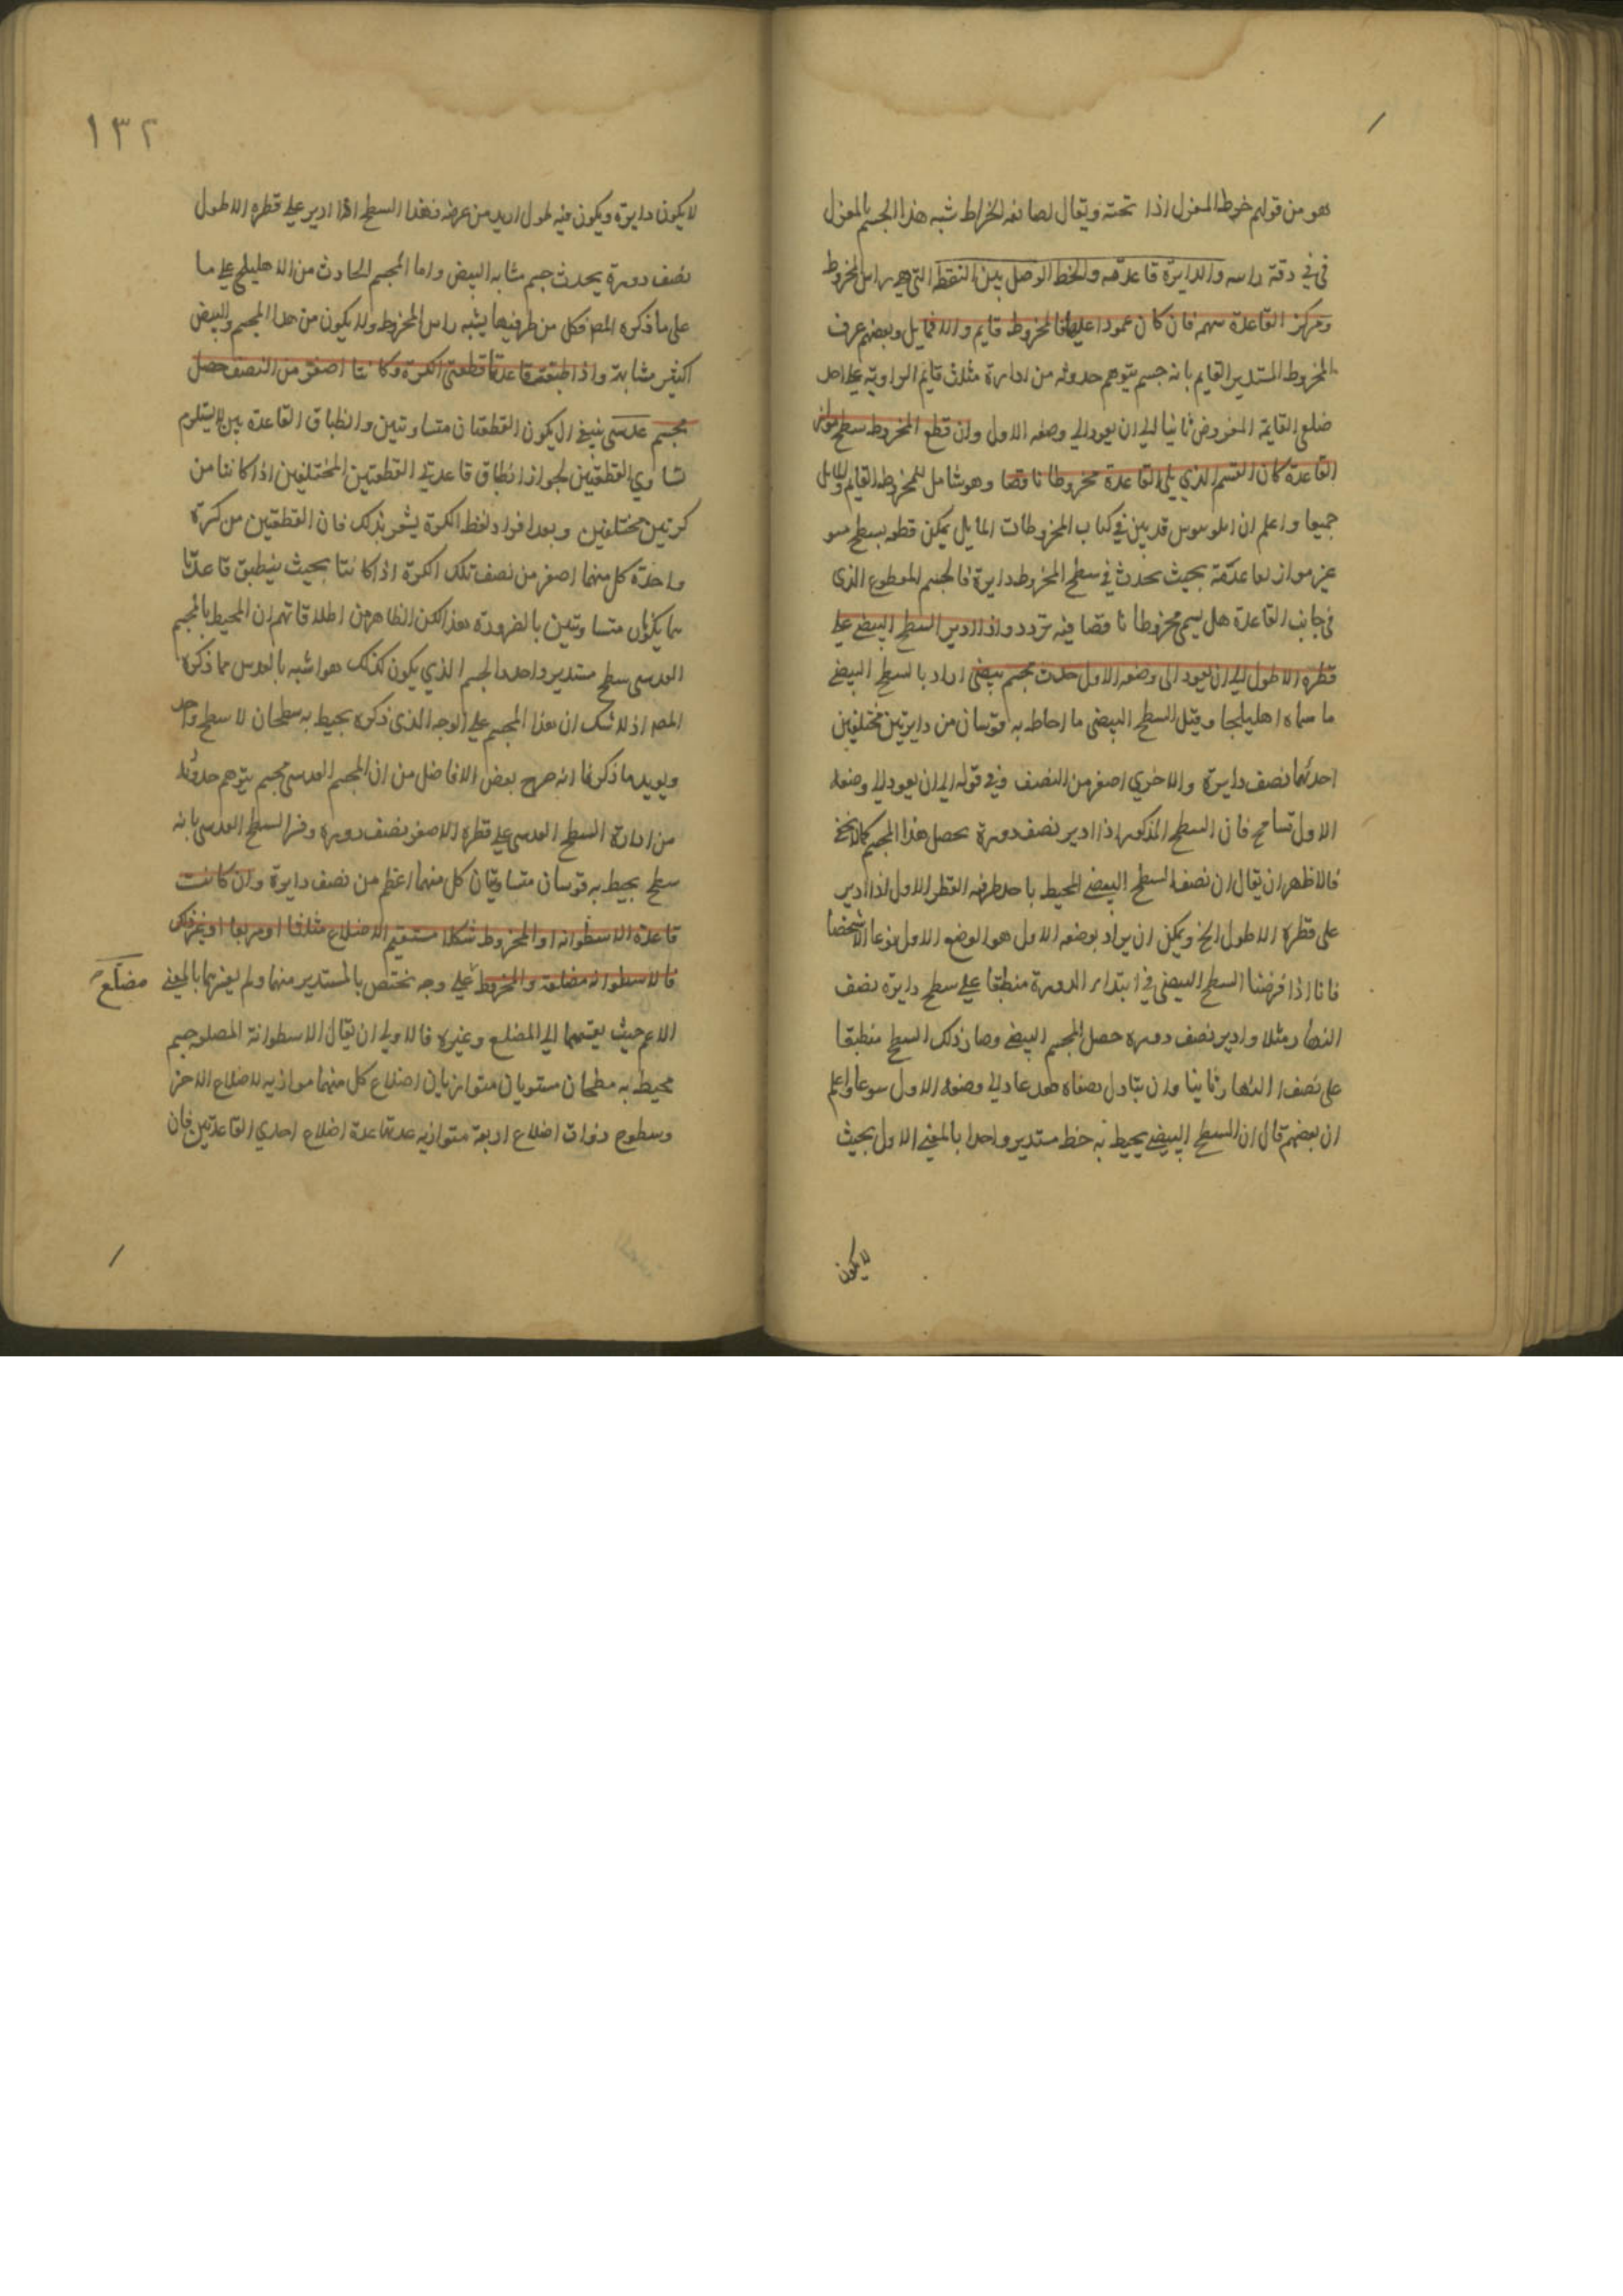 هو من قولهم خرط المغزل اذا نحته ويقال لصانعه الخراط شبه هذا الجسم بالمغزل
في دقة راسه والدايرة قاعدته والخط الوصل بين النقطة التي هي راس المخروط
ومركز القاعدة سهمه فان كان عمودا عليها فالمخروط قايم والا فمايل وبعضهم عرف
المخروط المستدير القايم بانه جسم يتوهم حدوثه من ادارة مثلث قايم الزاوية على احد
ضلعي القايمة المفروض ثابتا الى ان يعود الى وضعه الاول وان قطع المخروط بسطح مواز
القاعدة كان القسم الذي يلي القاعدة مخروطا ناقصا وهو شامل للمخروط القايم والمايل
جميعا واعلم ان ابلونيوس قد بين في كتاب المخروطات المايل يمكن قطعه بسطح مستو
غير مواز لقاعدته بحيث يحدث في سطح المخروط دايرة فالجسم المقطوع الذي
في جانب القاعدة هل يسمى مخروطا ناقصا فيه تردد واذا ادير السطح البيضي على
قطره الاطول الى ان يعود الى وضعه الاول حدث مجسم بيضي اراد بالسطح البيضي
ما سماه اهليلجا وقيل السطح البيضي ما احاط به قوسان من دايرتين مختلفتين
احدهما نصف دايرة والاخري اصغر من النصف وفي قوله الى ان يعود الى وضعه
الاول تسامح فان السطح المذكور اذا ادير نصف دورة يحصل هذا المجسم كما لا يخفى
فالاظهر ان يقال ان نصف السطح البيضي المحيط باحد طرفيه القطر الاول اذا ادير
على قطره الاطول الخ ويمكن ان يراد بوضعه الاول هو الوضع الاول نوعا لا شخصا
فانا اذا فرضنا السطح البيضي في ابتداء الدورة منطبقا على سطح دايرة نصف
النهار مثلا وادير نصف دورة حصل المجسم البيضي وصار ذلك السطح منطبقا
على نصف النهار ثانيا وان تبادل نصفاه فقد عاد الى وضعه الاول نوعا واعلم
ان بعضهم قال ان السطح البيضي يحيط به خط مستدير واحد بالمعنى الاول بحيث
لا يكون
١٣٢
لا يكون دايرة ويكون فيه طول ازيد من عرضه فهذا السطح اذا ادير على قطره الاطول
نصف دورة يحدث جسم مشابه البيض واما المجسم الحادث من الاهليلجي على ما
على ما ذكره المص فكل من طرفيها يشبه راس المخروط ولا يكون من هذا المجسم والبيض
اكثير مشابهة واذا طبقت قاعدتا قطعتي الكرة وكانتا اصغر من النصف حصل
مجسم عدسي ينبغي ان يكون القطعتان متساويتين وانطباق القاعدة بين لا يستلزم
تساوي القطعتين لجواز انطباق قاعدتي القطعتين المختلفتين اذا كانتا من
كرتين مختلفتين وبعد افراد لفظ الكرة يشعر بذلك فان القطعتين من كرة
واحدة كل منهما اصغر من نصف تلك الكرة اذا كانتا بحيث ينطبق قاعدتا
هما يكونان متساويتين بالضرورة هذا لكن الظاهر من اطلاقاتهم ان المحيط بالمجسم
العدسي سطح مستدير واحد والجسم الذي يكون كذلك هو اشبه بالعدس مما ذكره
المص اذ لا شك ان هذا المجسم على الوجه الذي ذكره يحيط به سطحان لا سطح واحد
ويويد ما ذكرنا انه صرح بعض الافاضل من ان المجسم العدسي مجسم يتوهم حدوثه
من ادارة السطح العدسي على قطره الاصغر نصف دورة وفسر السطح العدسي بانه
سطح يحيط به قوسان متساويتان كل منهما اعظم من نصف دايرة وان كانت
قاعدة الاسطوانة او المخروط شكلا مستقيم الاضلاع مثلثا او مربعا او غير ذلك
فالاسطوانة مضلعة والمخروط على وجه يختص بالمستدير منهما ولم يفسرهما بالمعنى
مضلع
الاعم حيث يقسمهما الى المضلع وغيره فالاولى ان يقال الاسطوانة المضلعة جسم
محيط به سطحان مستويان متوازيان اضلاع كل منهما موازية لاضلاع الاخر
وسطوح ذوات اضلاع اربعة متوازية عدتها عدة اضلاع احدي القاعدتين فان